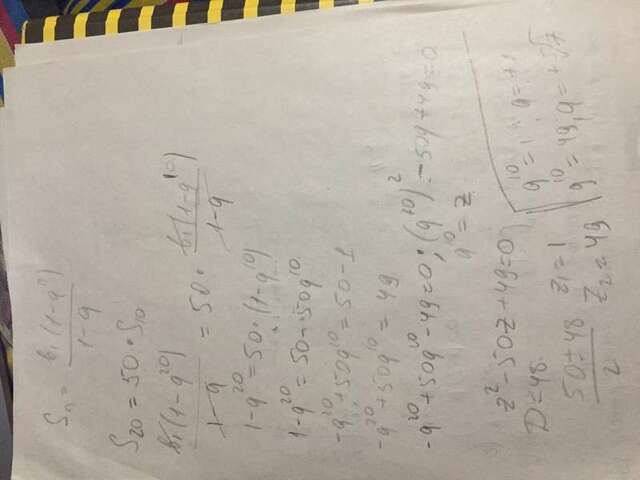 Sₙ = b₁(1-qⁿ) / 1-q
S₂₀ = 50 · S₁₀
b₁(1-q²⁰) / 1-q = 50 · b₁(1-q¹⁰) / 1-q
1-q²⁰ = 50 · (1-q¹⁰)
1-q²⁰ = 50 - 50q¹⁰
-q²⁰ + 50q¹⁰ = 50-1
-q²⁰ + 50q¹⁰ = 49
-q²⁰ + 50q¹⁰ - 49 = 0 ; (q¹⁰)² - 50q + 49 = 0
q¹⁰ = z
z² - 50z + 49 = 0
D = 48
50 ± 48 / 2
z₁ = 1
z₂ = 49
q¹⁰ = 1 ; q = ±1
q¹⁰ = 49, q = ±⁵√7